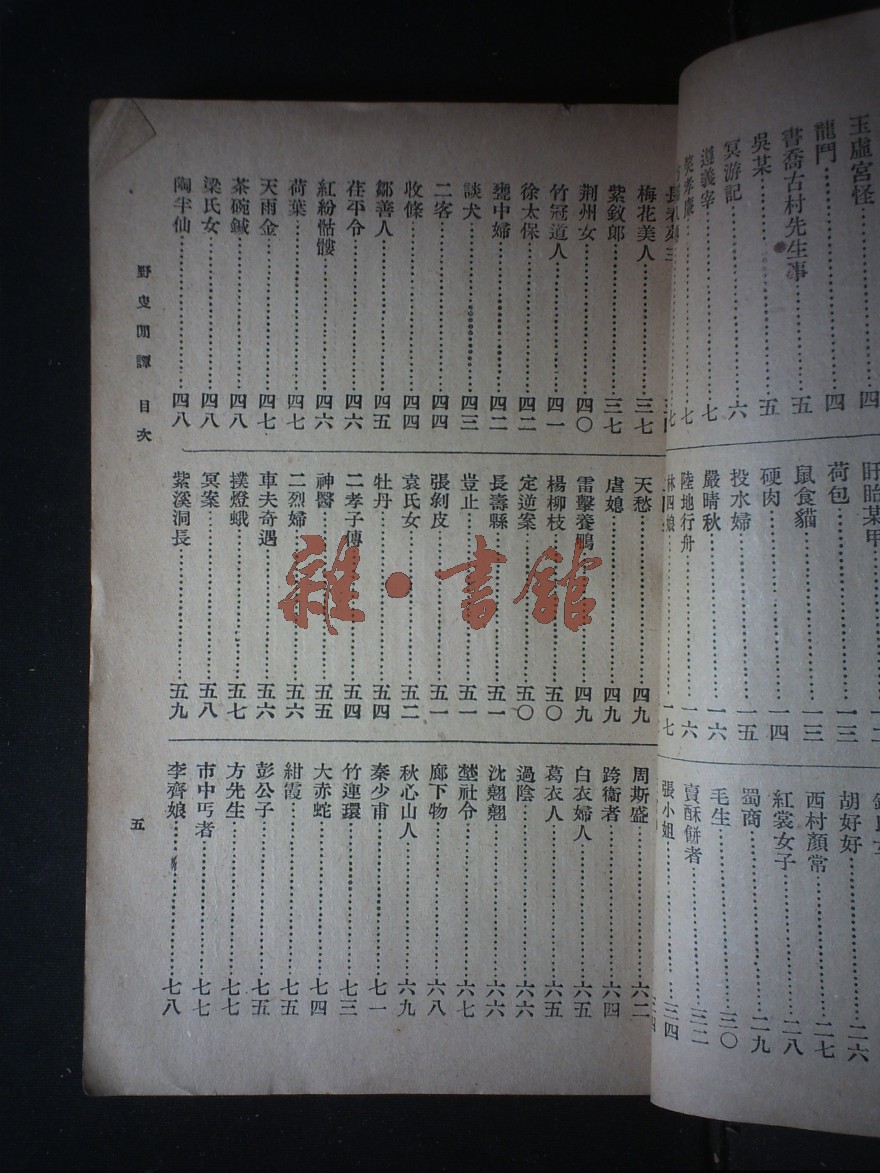 玉虛宮怪⋯⋯四
龍門⋯⋯四
書喬古村先生事⋯⋯五
吳某⋯⋯五
冥游記⋯⋯六
遵義宰⋯⋯七
七
盱眙某甲⋯⋯一二
荷包⋯⋯一三
鼠食貓⋯⋯一三
硬肉⋯⋯一四
投水婦⋯⋯一五
嚴晴秋⋯⋯一六
陸地行舟⋯⋯一六
林四娘⋯⋯一七
胡好好⋯⋯二六
西村顏常⋯⋯二七
紅裳女子⋯⋯二八
蜀商⋯⋯二九
毛生⋯⋯三〇
賣酥餅者⋯⋯三二
張小姐⋯⋯三四
梅花美人⋯⋯三七
紫釵郎⋯⋯三七
荆州女⋯⋯四〇
竹冠道人⋯⋯四一
徐太保⋯⋯四二
甕中婦⋯⋯四二
談犬⋯⋯四三
二客⋯⋯四四
收條⋯⋯四四
鄒善人⋯⋯四五
茌平令⋯⋯四六
紅紛骷髏⋯⋯四六
荷葉⋯⋯四七
天雨金⋯⋯四七
茶碗鍼⋯⋯四八
梁氏女⋯⋯四八
陶半仙⋯⋯四八
天愁⋯⋯四九
虐媳⋯⋯四九
雷擊養鵬⋯⋯四九
楊柳枝⋯⋯五〇
定逆案⋯⋯五〇
長壽縣⋯⋯五一
豈止⋯⋯五一
張剝皮⋯⋯五一
袁氏女⋯⋯五二
牡丹⋯⋯五四
二孝子傳⋯⋯五四
神醫⋯⋯五五
二烈婦⋯⋯五六
車夫奇遇⋯⋯五六
撲燈蛾⋯⋯五七
冥案⋯⋯五八
紫溪洞長⋯⋯五九
周斯盛⋯⋯六二
跨衞者⋯⋯六四
白衣婦人⋯⋯六五
葛衣人⋯⋯六五
過陰⋯⋯六六
沈翹翹⋯⋯六六
埜社令⋯⋯六七
廊下物⋯⋯六八
秋心山人⋯⋯六九
秦少甫⋯⋯七一
竹連環⋯⋯七三
大赤蛇⋯⋯七四
紺霞⋯⋯七五
彭公子⋯⋯七五
方先生⋯⋯七七
市中丐者⋯⋯七七
李齊娘⋯⋯七八
野叟閒譚 目次
五
雜·書館